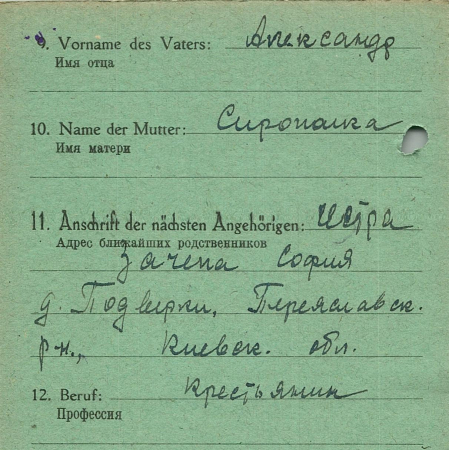 9. Vorname des Vaters: Александр
Имя отца
10. Name der Mutter: Сиропалка
Имя матери
11. Anschrift der nächsten Angehörigen: Сестра
Адрес ближайших родственников
Зачепа София
д. Подверки, Переяславск.
рн., Киевск. обл.
12. Beruf: Крестьянин
Профессия